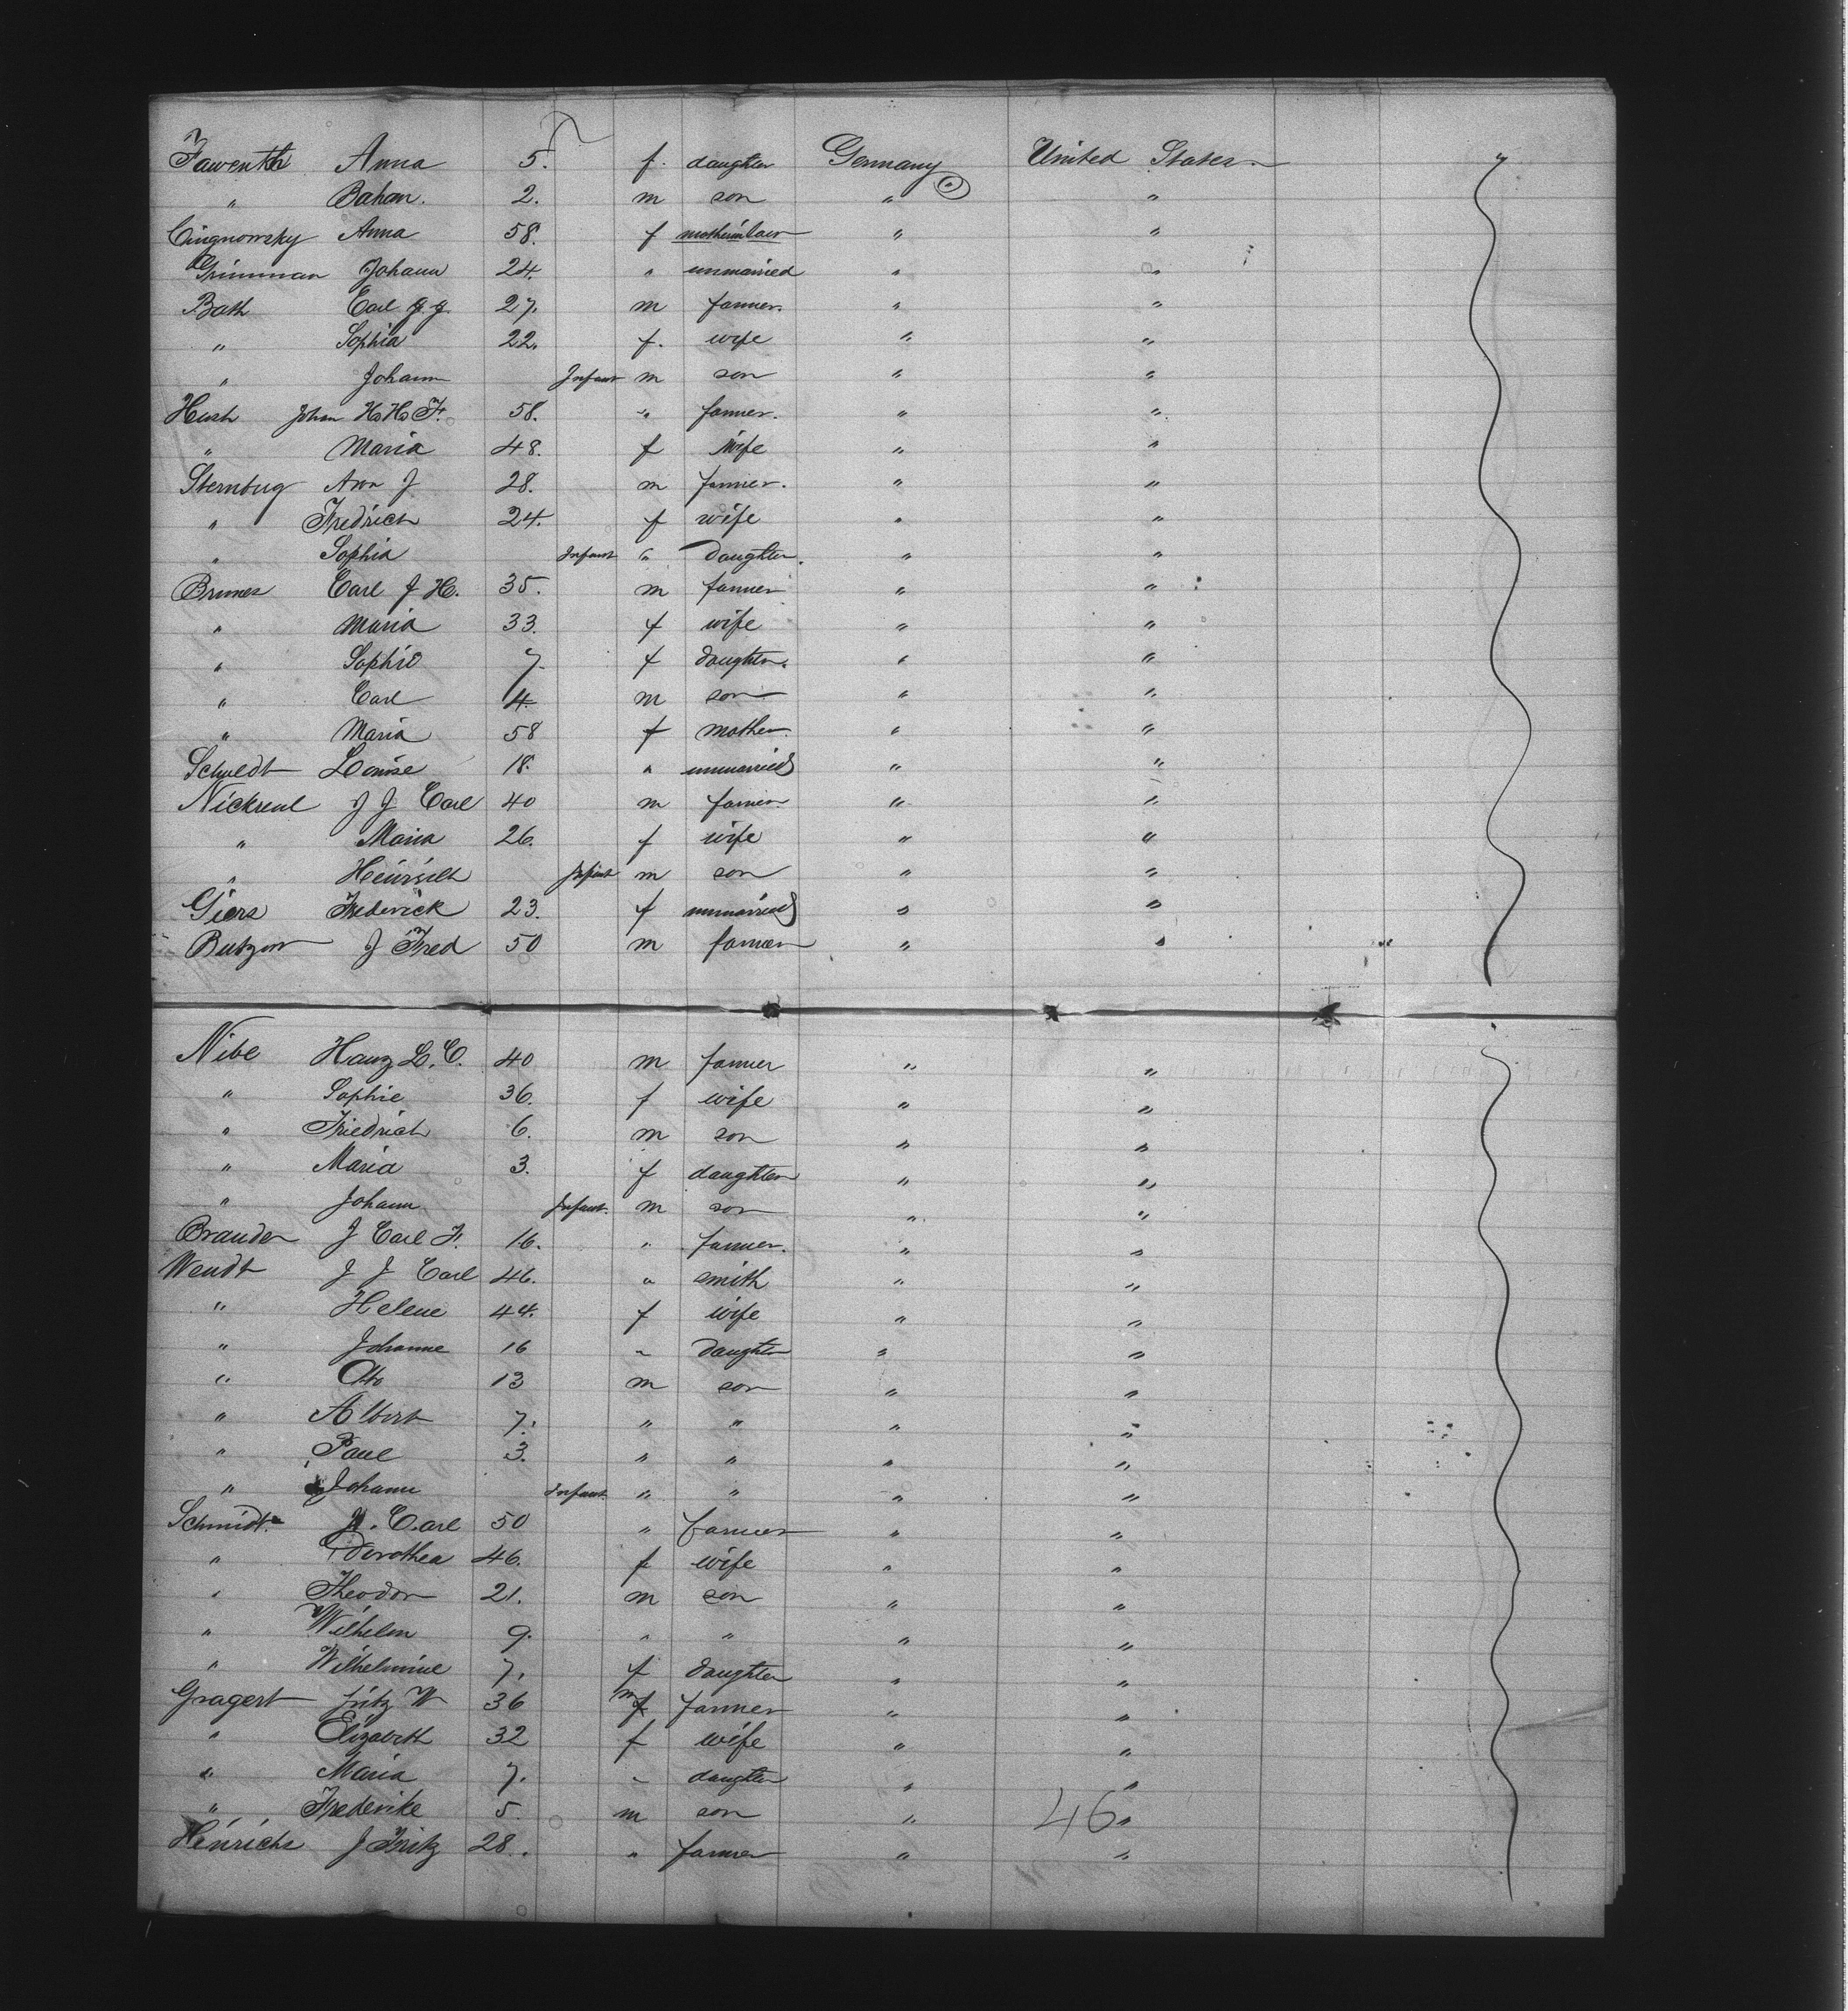 Fawenth Anna 5. f. daughter Germany United States
" Bahan. 2. m son " "
Cingnowsky Anna 58. f motherinlaw " "
Grimman Johann 24. " unmarried " "
Bath Carl J. J. 27. m farmer. " "
" Sophia 22. f. wife " "
" Johann Infant m son " "
Hush Johan H. H. F. 58. " farmer. " "
" Maria 48. f wife " "
Sternbug Aron J 28. m farmer. " "
" Fredrich 24. f wife " "
" Sophia Infant " daughter. " "
Brunes Carl J H. 35. m farmer " "
" Maria 33. f wife " "
" Sophie 7. f daughter. " "
" Carl 4. m son " "
" Maria 58 f mother. " "
Schuldt Louise 18. " unmarried " "
Nickreul J J Carl 40 m farmer " "
" Maria 26. f wife " "
" Heinrich Infant m son " "
Giers Frederick 23. f unmarried " "
Butzin J Fred 50 m farmer " "
Nibe Hanz L. C. 40 m farmer " "
" Sophie 36. f wife " "
" Friedrich 6. m son " "
" Maria 3. f daughter " "
" Johann Infant. m son " "
Brauder J Carl F. 16. " farmer. " "
Wendt J J Carl 46. " smith " "
" Helene 44. f wife " "
" Johanne 16 " daughter " "
" Otto 13 m son " "
" Albert 7. " " " "
" Paul 3. " " " "
" Johann Infant " " " "
Schmidt J. Carl 50 " farmer " "
" Dorothea 46. f wife " "
" Theodor 21. m son " "
" Wilhelm 9. " " " "
" Wilhelmine 7. f daughter " "
Gragert fritz W 36 m farmer " "
" Elizabeth 32 f wife " "
" Maria 7. " daughter " "
" Frederike 5. m son " 46 "
Hinrichs J Fritz 28. " farmer " "